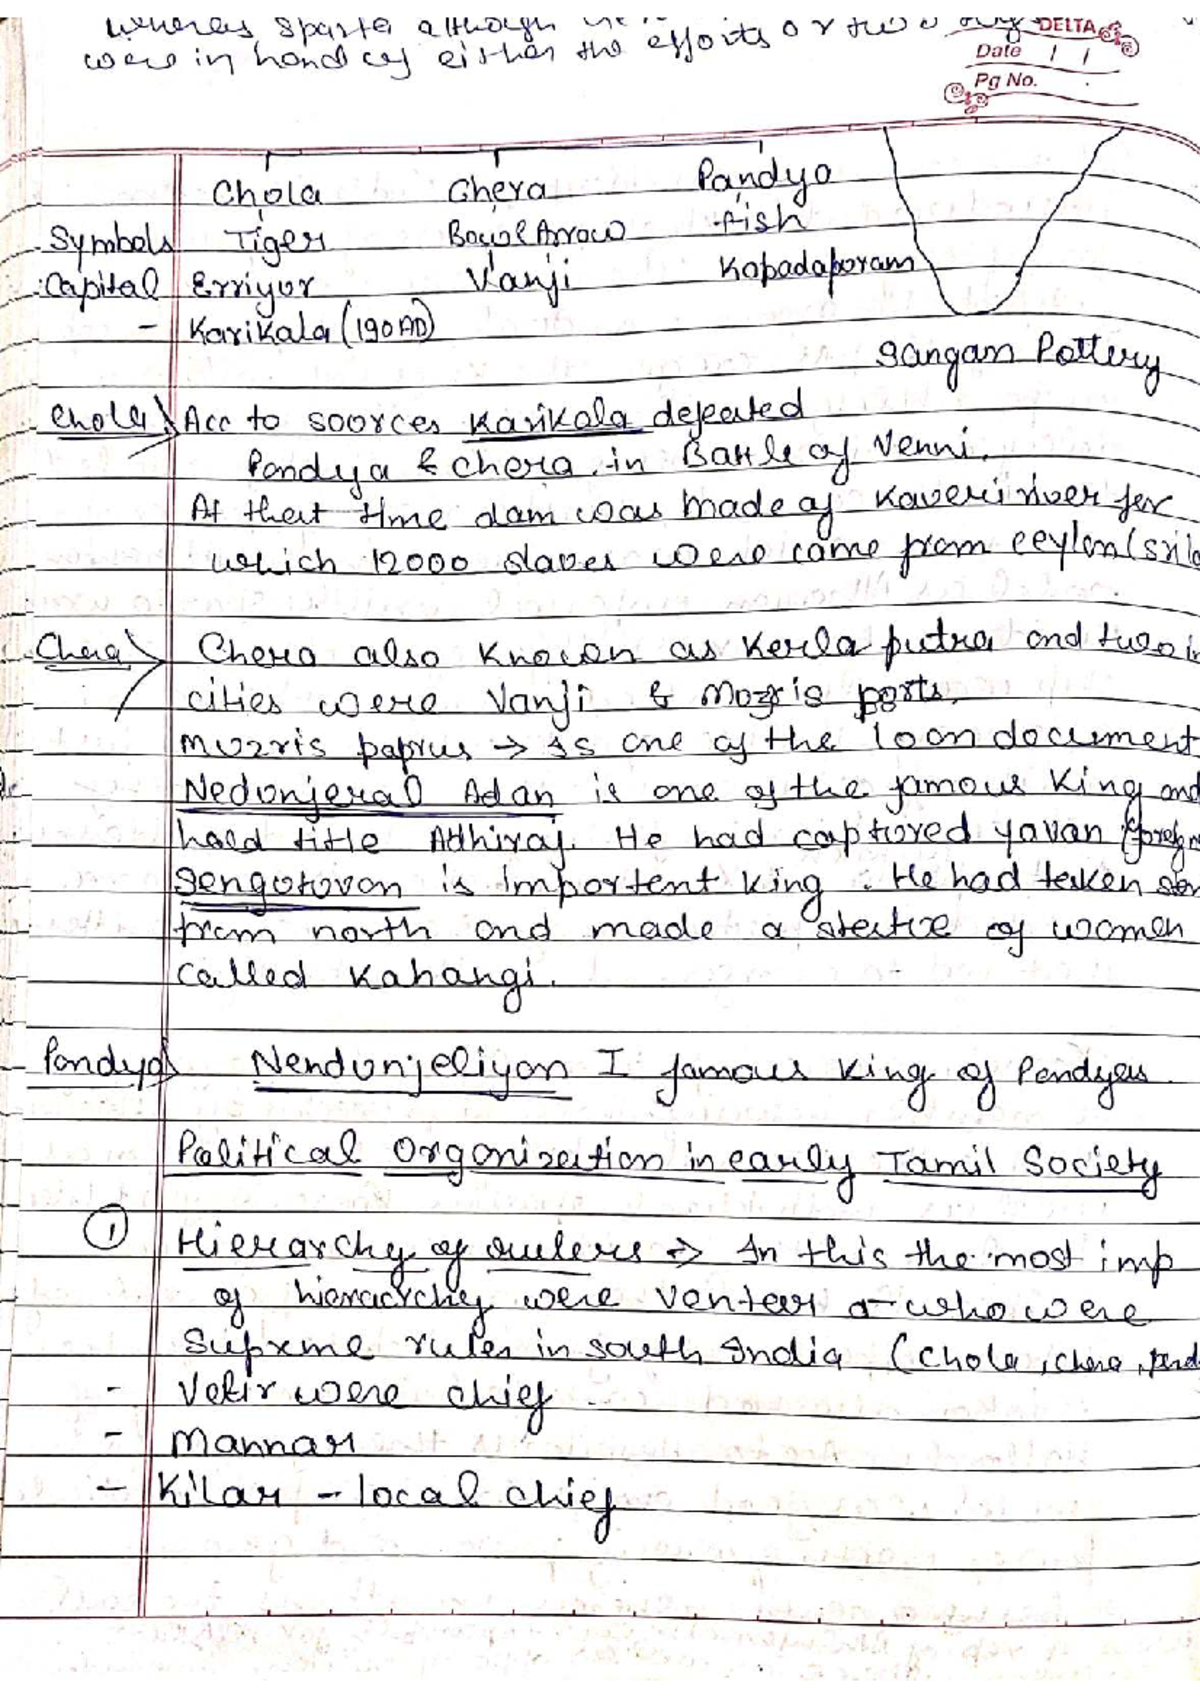 whereas sparta although
were in hand of either the efforts or two
DELTA
Date / /
Pg No.
Chola Chera Pandya
Symbols Tiger Bow & Arrow fish
Capital Erriyur Vanji Kapadapuram
- Karikala (190 AD)
Sangam Pottery
Chola Acc to sources Karikala defeated
Pandya & chera in Battle of Venni.
At that time dam was made of Kaveri river for
which 12000 slaves were came from ceylon (sri
Chera Chera also known as Kerla putra and twin
cities were Vanji & Mozris ports.
Muzris paprus → Is one of the loan document
Nedunjeral Adan is one of the famous King and
hold title Adhiraj. He had captured yavan
Sengutuvan is importent King. He had taken
from north and made a statue of women
called Kahangi.
Pandya Nendunjeliyan I famous King of Pandyas.
Political Organisation in early Tamil Society
① Hierarchy of rulers → In this the most imp
of hierarchy were Venteur who were
Supreme rules in south India (Chola, chera,
- Velir were chief
- Mannar
- Kilar - local chief